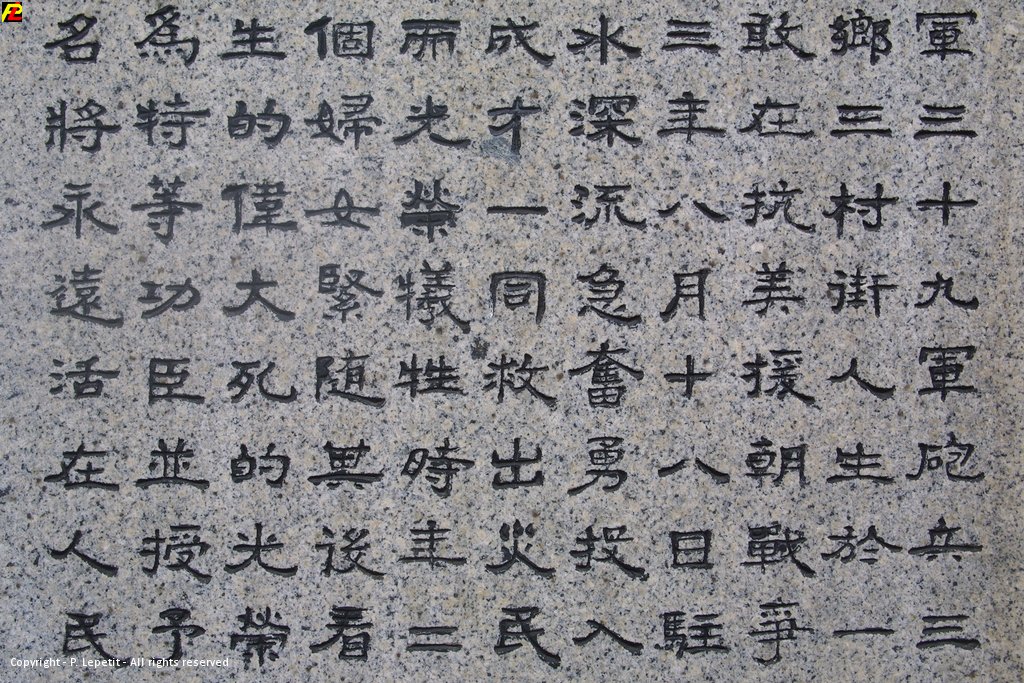 軍三十九軍砲兵三
鄉三村街人生於一
敢在抗美援朝戰爭
三年八月十八日駐
水深流急奮勇投入
成才一同救出災民
而光榮犧牲時年二
個婦女緊随其後看
生的偉大死的光榮
為特等功臣並授予
名將永遠活在人民
Copyright - P. Lepetit - All rights reserved